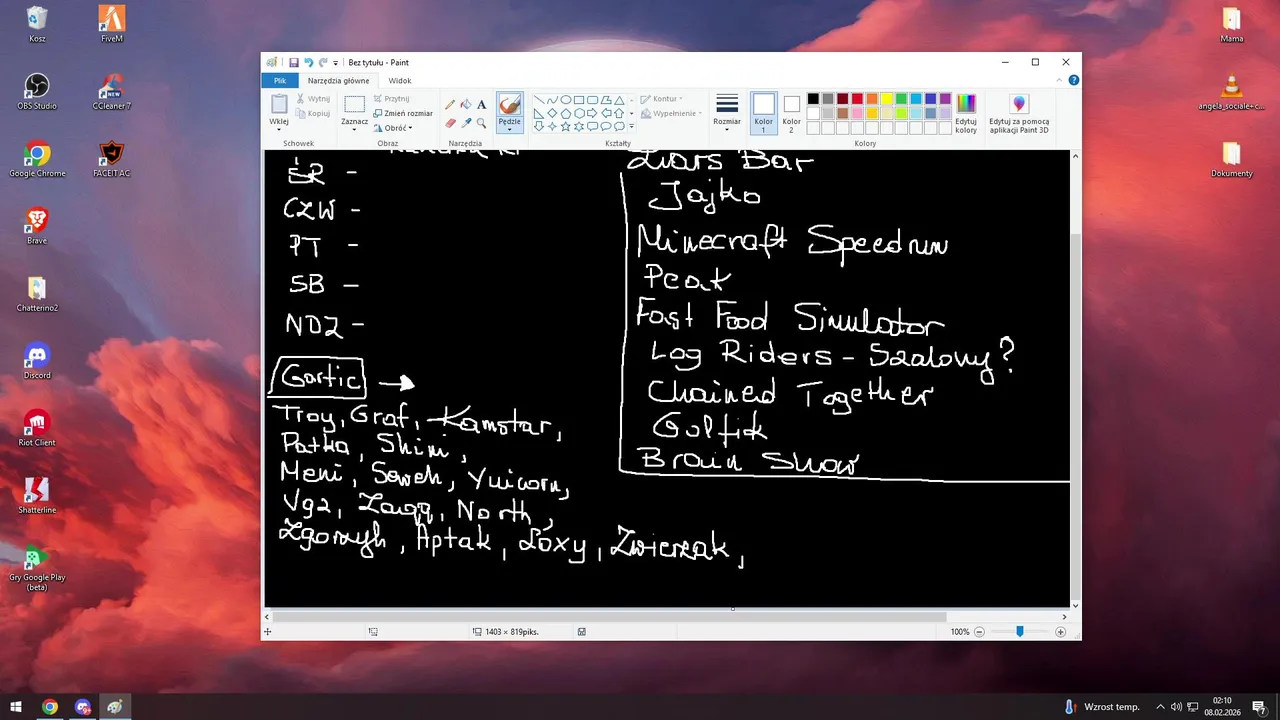 Kosz
FiveM
OBS Studio
CCleaner 7
Google Chrome
FACEIT AC
Brave
Chatterino2
Discord
Riot Client
Shatterline
Gry Google Play (beta)
Mama
angela_sociale+c...
Dokumenty
Bez tytułu - Paint
Plik
Narzędzia główne
Widok
Wklej
Wytnij
Kopiuj
Schowek
Zaznacz
Przytnij
Zmień rozmiar
Obróć
Obraz
A
Narzędzia
Pędzle
Kształty
Kontur
Wypełnienie
Rozmiar
Kolor 1
Kolor 2
Edytuj kolory
Kolory
Edytuj za pomocą aplikacji Paint 3D
ŚR -
CZW -
PT -
SB -
NDZ -
Gartic
Troy, Graf, Kamstar,
Patka, Shini,
Meni, Seweh, Yuicorn,
Vgz, Zaqq, North,
Zgorzyh, Aptak, Łoxy, Zwierzak,
Liars Bar
Jajko
Minecraft Speedrun
Peak
Fast Food Simulator
Log Riders - Szalony?
Chained Together
Golfik
Brain Show
1403 × 819piks.
100%
Wzrost temp.
02:10
08.02.2026
7